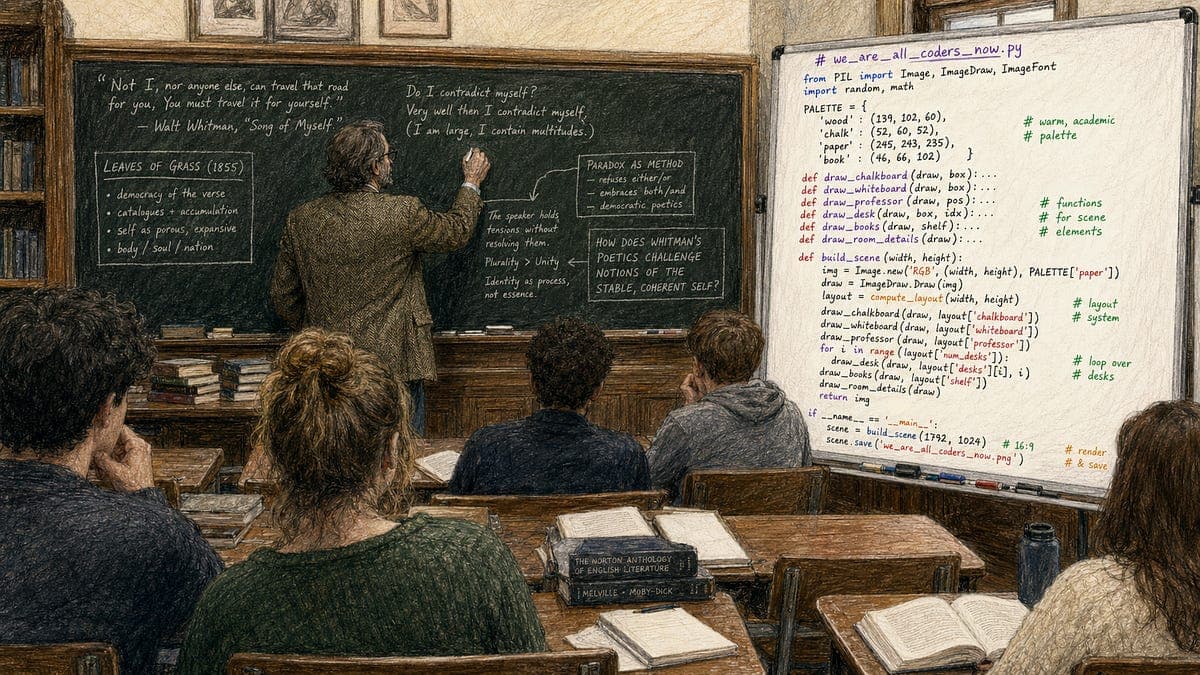 “Not I, nor anyone else, can travel that road
for you, You must travel it for yourself.”
— Walt Whitman, “Song of Myself”
Do I contradict myself?
Very well then I contradict myself,
(I am large, I contain multitudes.)
LEAVES OF GRASS (1855)
• democracy of the verse
• catalogues + accumulation
• self as porous, expansive
• body / soul / nation
PARADOX AS METHOD
– refuses either/or
– embraces both/and
– democratic poetics
The speaker holds
tensions without
resolving them.
Plurality > Unity
Identity as process,
not essence.
HOW DOES WHITMAN'S
POETICS CHALLENGE
NOTIONS OF THE
STABLE, COHERENT SELF?
# we_are_all_coders_now.py
from PIL import Image, ImageDraw, ImageFont
import random, math
PALETTE = {
'wood' : (139, 102, 60),
'chalk' : (52, 60, 52),
'paper' : (245, 243, 235),
'book' : (46, 66, 102) }
# warm, academic
# palette
def draw_chalkboard (draw, box):...
def draw_whiteboard (draw, box):...
def draw_professor (draw, pos):...
def draw_desk (draw, box, idx):...
def draw_books (draw, shelf):...
def draw_room_details (draw):...
# functions
# for scene
# elements
def build_scene (width, height):
img = Image.new('RGB', (width, height), PALETTE['paper'])
draw = ImageDraw.Draw (img)
layout = compute_layout (width, height)
draw_chalkboard (draw, layout['chalkboard'])
draw_whiteboard (draw, layout['whiteboard'])
draw_professor (draw, layout['professor'])
for i in range (layout['num_desks']):
draw_desk (draw, layout['desks'][i], i)
draw_books (draw, layout['shelf'])
draw_room_details (draw)
return img
# layout
# system
# loop over
# desks
if __name__ == '__main__':
scene = build_scene (1792, 1024) # 16:9
scene.save ('we_are_all_coders_now.png')
# render
# & save
THE NORTON ANTHOLOGY
OF ENGLISH LITERATURE
MELVILLE • MOBY-DICK